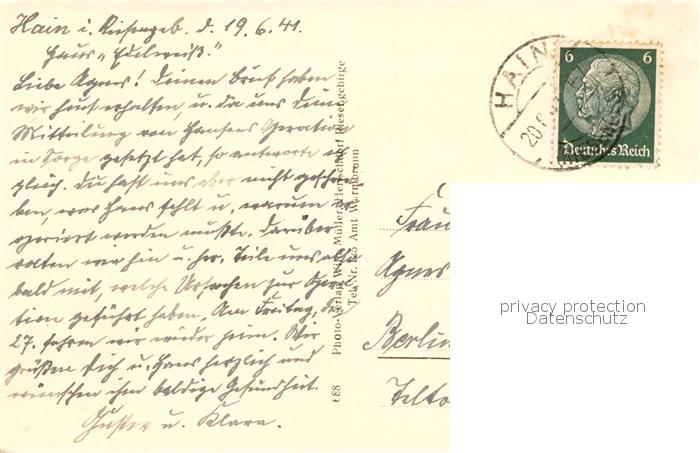 Hain i. Riesengeb. d. 19.6.41.
Haus „Edelweiß."
Liebe Agnes! Deinen Brief haben
wir heut erhalten, u. da uns Deine
Mitteilung von Hansens Operation
in Sorge gesetzt hat, so antworte ich
gleich. Du hast uns aber nicht geschrie-
ben, was Hans fehlt u. warum er
operiert werden mußte. Darüber
raten wir hin u. her. Teile uns also
bald mit, welche Ursachen zur Opera-
tion geführt haben. Am Freitag, den
27. fahren wir wieder heim. Wir
grüßen Dich u. Hans herzlich und
wünschen ihm baldige Gesundheit.
Gustav u. Klara.
688 Photo-Verlag Willy Müller, Herischdorf Riesengebirge
Tel. Nr. Amt Warmbrunn
HAIN
20.6.41
6 6
Deutsches Reich
Frau
Agnes
Berlin
Telto
privacy protection
Datenschutz